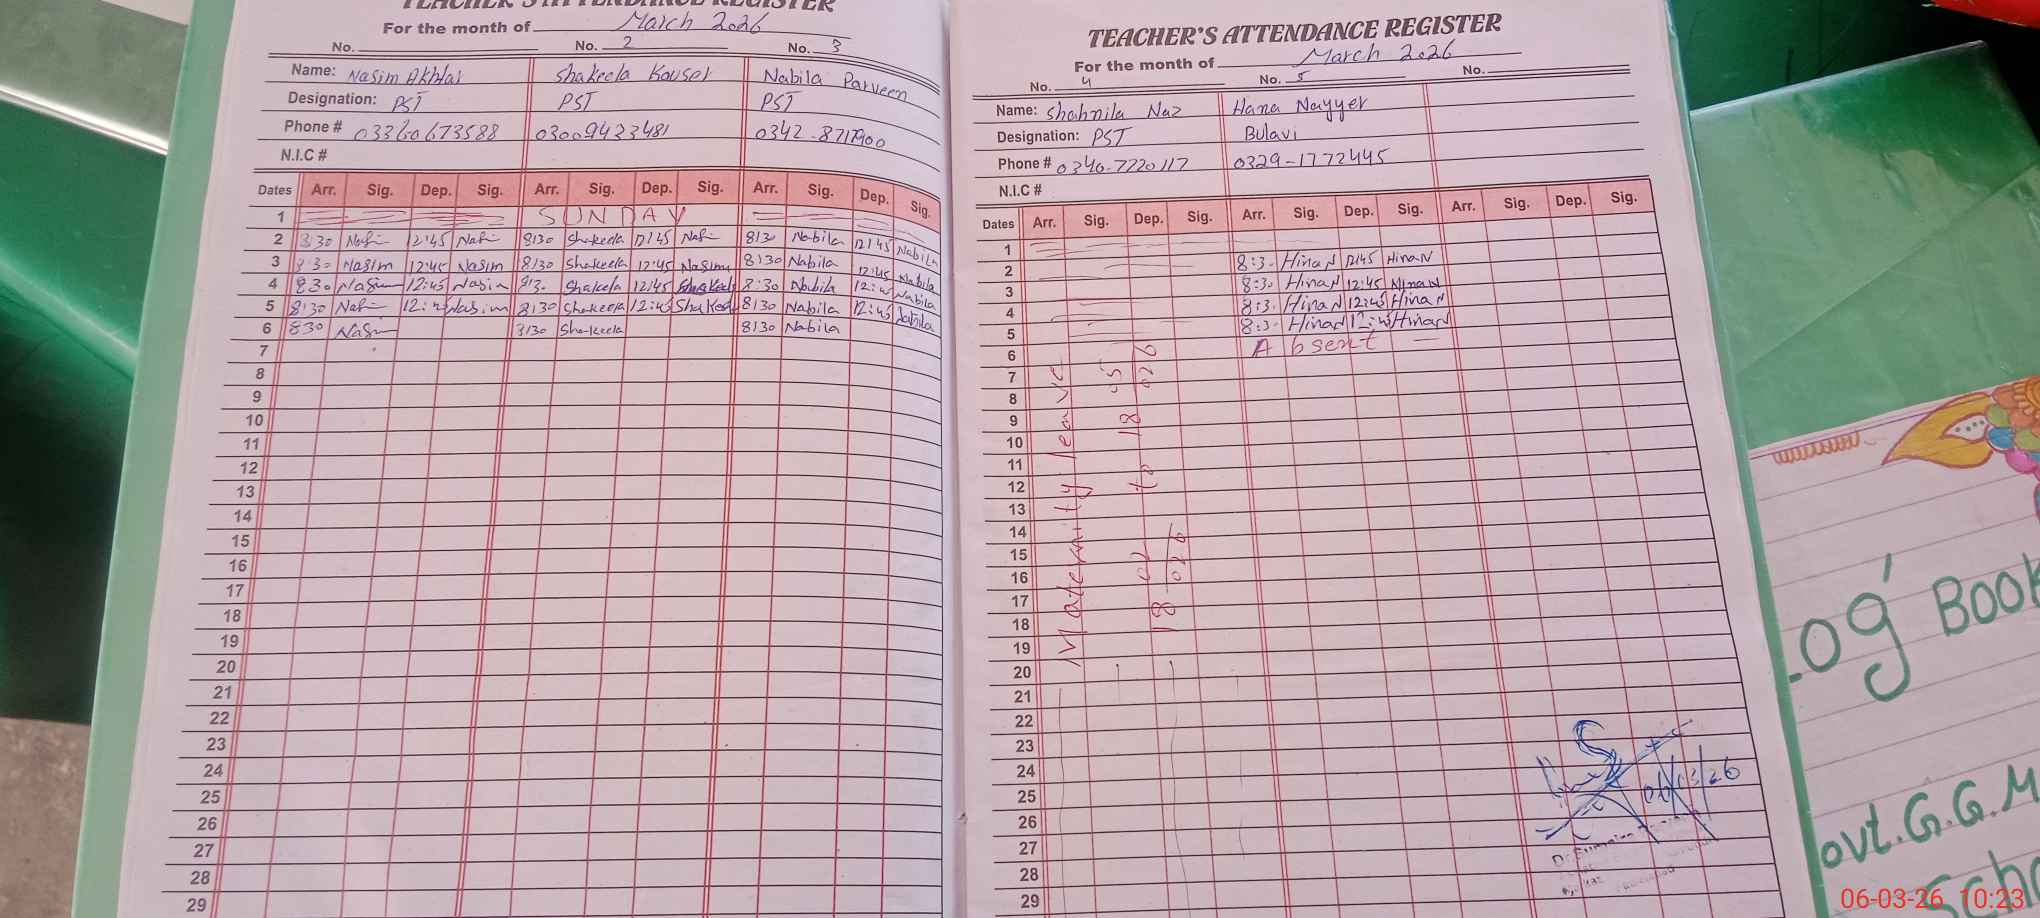 TEACHER'S ATTENDANCE REGISTER
For the month of March 2026
No. No. 2 No. 3
Name: Nasim Akhtar Shakeela Kousar Nabila Parveen
Designation: PST PST PST
Phone # 03360673588 03009423481 0342-8717900
N.I.C #
Dates Arr. Sig. Dep. Sig. Arr. Sig. Dep. Sig. Arr. Sig. Dep. Sig.
1 SUNDAY
2 8:30 12:45 8:30 Shakeela 12:45 8:30 Nabila 12:45 Nabila
3 8:30 Nasim 12:45 Nasim 8:30 Shakeela 12:45 Nasim 8:30 Nabila 12:45 Nabila
4 8:30 Nasim 12:45 Nasim 8:30 Shakeela 12:45 Shakeela 8:30 Nabila 12:45 Nabila
5 8:30 12:45 Nasim 8:30 Shakeela 12:45 Shakeela 8:30 Nabila 12:45 Nabila
6 8:30 Nasim 8:30 Shakeela 8:30 Nabila
7
8
9
10
11
12
13
14
15
16
17
18
19
20
21
22
23
24
25
26
27
28
29
TEACHER'S ATTENDANCE REGISTER
For the month of March 2026
No. 4 No. 5 No.
Name: Shahnila Naz Hana Nayyer
Designation: PST Bulavi
Phone # 0340-7720117 0329-1772445
N.I.C #
Dates Arr. Sig. Dep. Sig. Arr. Sig. Dep. Sig. Arr. Sig. Dep. Sig.
1
2 8:30 HinaN 12:45 HinaN
3 8:30 HinaN 12:45 HinaN
4 8:30 HinaN 12:45 HinaN
5 8:30 HinaN 12:45 HinaN
6 Absent
7
8
9
10
11
12
13
14
15
16
17
18
19
20
21
22
23
24
25
26
27
28
29
Maternity leave
18 02 026 to 18 05 026
06/03/26
Log Book
Govt. G.G.M
Scho
06-03-26 10:23